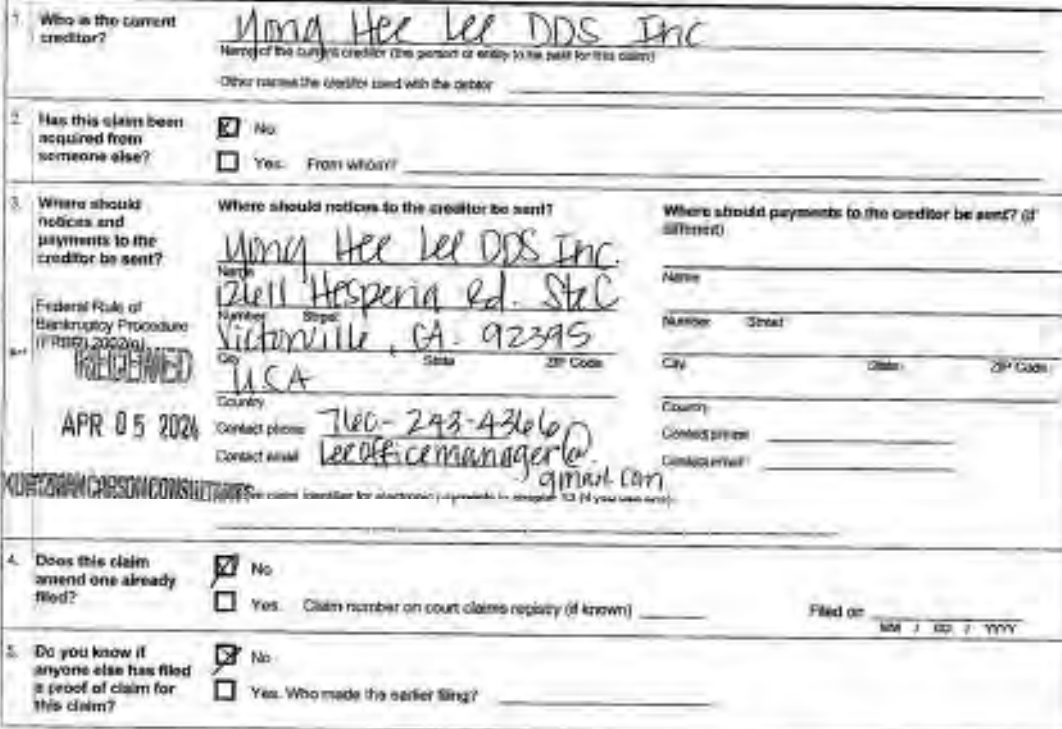 1. Who is the current creditor?
Yong Hee Lee DDS Inc
Name of the current creditor (the person or entity to be paid for this claim)
Other names the creditor used with the debtor
2. Has this claim been acquired from someone else?
No
Yes. From whom?
3. Where should notices and payments to the creditor be sent?
Federal Rule of Bankruptcy Procedure (FRBP) 2002(g)
RECEIVED
APR 05 2024
KURTZMAN CARSON CONSULTANTS
Where should notices to the creditor be sent?
Yong Hee Lee DDS Inc.
Name
Hesperia Rd. Ste C
Number Street
Victorville, CA. 92395
City State ZIP Code
USA
Country
Contact phone 760-243-4366
Contact email leeofficemanager@
gmail.com
claim identifier for electronic payments in chapter 13 (if you use one):
Where should payments to the creditor be sent? (if different)
Name
Number Street
City State ZIP Code
Country
Contact phone
Contact email
4. Does this claim amend one already filed?
No
Yes. Claim number on court claims registry (if known)
Filed on
MM / DD / YYYY
5. Do you know if anyone else has filed a proof of claim for this claim?
No
Yes. Who made the earlier filing?